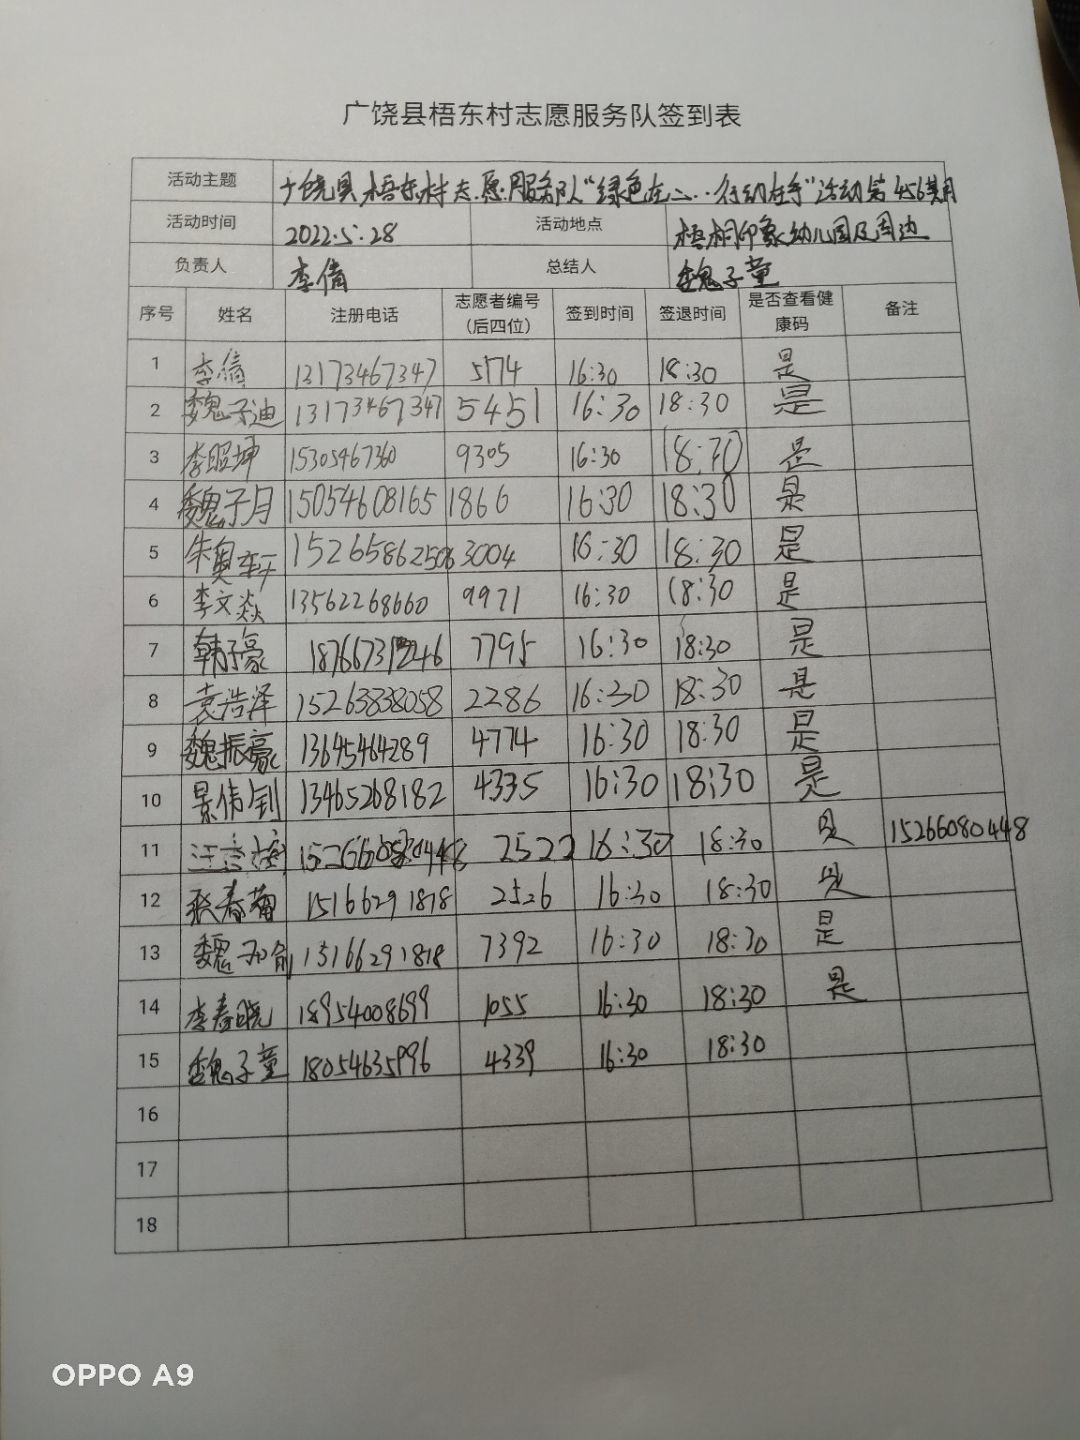 广饶县梧东村志愿服务队签到表
活动主题 广饶县梧东村志愿服务队“绿色在心…行动在手”活动第456期
活动时间 2022.5.28 活动地点 梧桐印象幼儿园及周边
负责人 李倩 总结人 魏子童
序号 姓名 注册电话 志愿者编号(后四位) 签到时间 签退时间 是否查看健康码 备注
1 李倩 13173467347 5174 16:30 18:30 是
2 魏子迪 13173467347 5451 16:30 18:30 是
3 李昭坤 15305467360 9305 16:30 18:30 是
4 魏子月 15054608165 1866 16:30 18:30 是
5 朱奥轩 15265862506 3004 16:30 18:30 是
6 李文焱 13562268660 9971 16:30 18:30 是
7 韩子豪 7795 16:30 18:30 是
8 袁浩泽 15263838058 2286 16:30 18:30 是
9 魏振豪 13645464289 4774 16:30 18:30 是
10 景倩钊 13465268182 4335 16:30 18:30 是
11 2522 16:30 18:30 是 15266080448
12 春菊 15166291818 2526 16:30 18:30 是
13 魏 15166291818 7392 16:30 18:30 是
14 李春晓 18954008699 1055 16:30 18:30 是
15 魏子童 18054635996 4339 16:30 18:30
16
17
18
OPPO A9